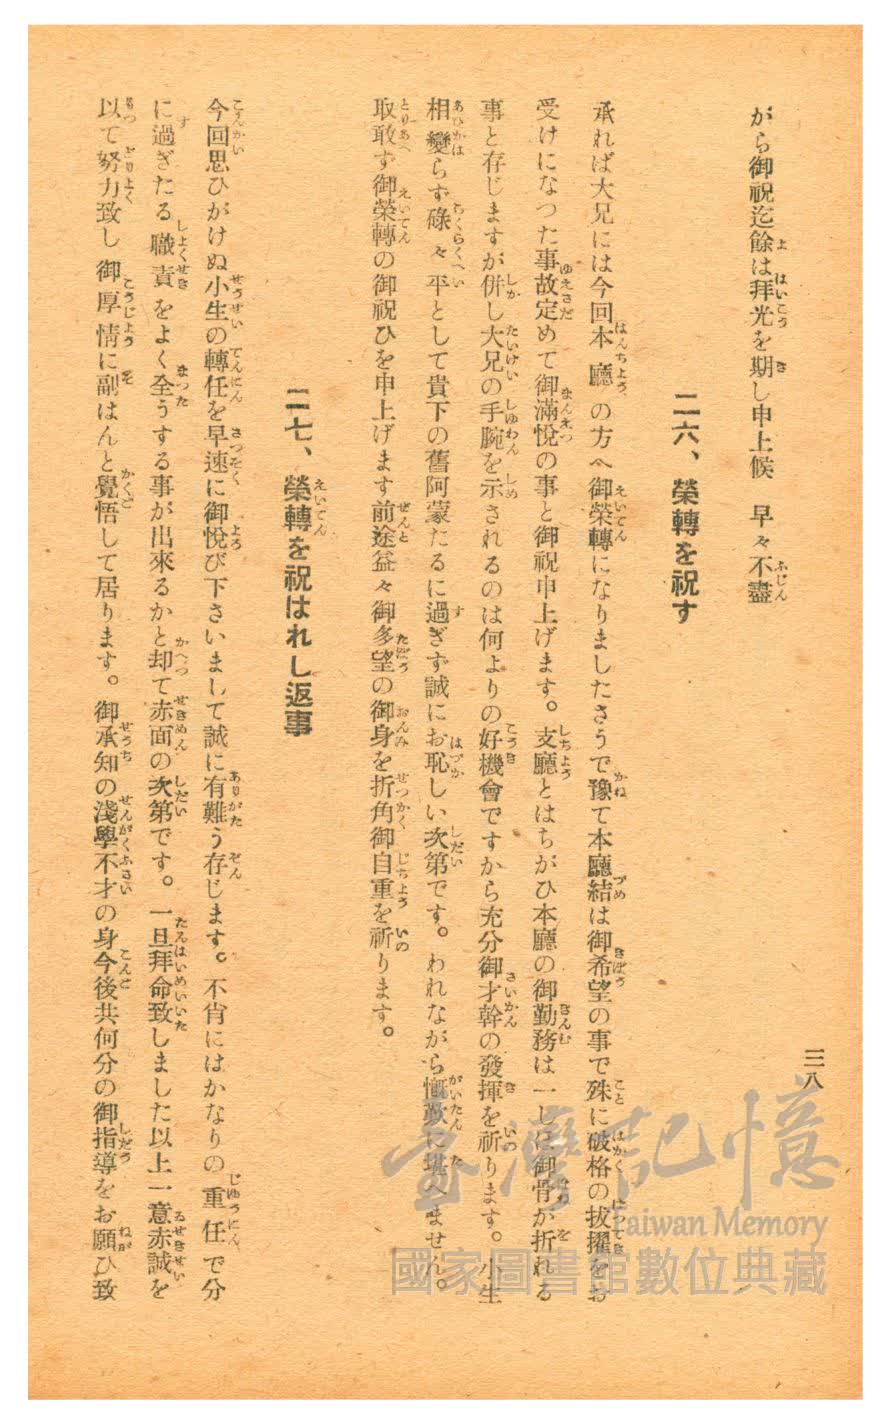 三八
がら御祝迄餘は拜光を期し申上候　早々不盡
二六、榮轉を祝す
承れば大兄には今回本廳の方へ御榮轉になりましたさうで豫て本廳結は御希望の事で殊に破格の拔擢をお
受けになつた事故定めて御滿悅の事と御祝申上げます。支廳とはちがひ本廳の御勤務は一しほ御骨が折れる
事と存じますが併し大兄の手腕を示されるのは何よりの好機會ですから充分御才幹の發揮を祈ります。小生
相變らず碌々平として貴下の舊阿蒙たるに過ぎず誠にお恥しい次第です。われながら慨歎に堪へません。
取敢ず御榮轉の御祝ひを申上げます前途益々御多望の御身を折角御自重を祈ります。
二七、榮轉を祝はれし返事
今回思ひがけぬ小生の轉任を早速に御悅び下さいまして誠に有難う存じます。不肖にはかなりの重任で分
に過ぎたる職責をよく全うする事が出來るかと却て赤面の次第です。一旦拜命致しました以上一意赤誠を
以て努力致し御厚情に副はんと覺悟して居ります。御承知の淺學不才の身今後共何分の御指導をお願ひ致
臺灣記憶
Taiwan Memory
國家圖書館數位典藏